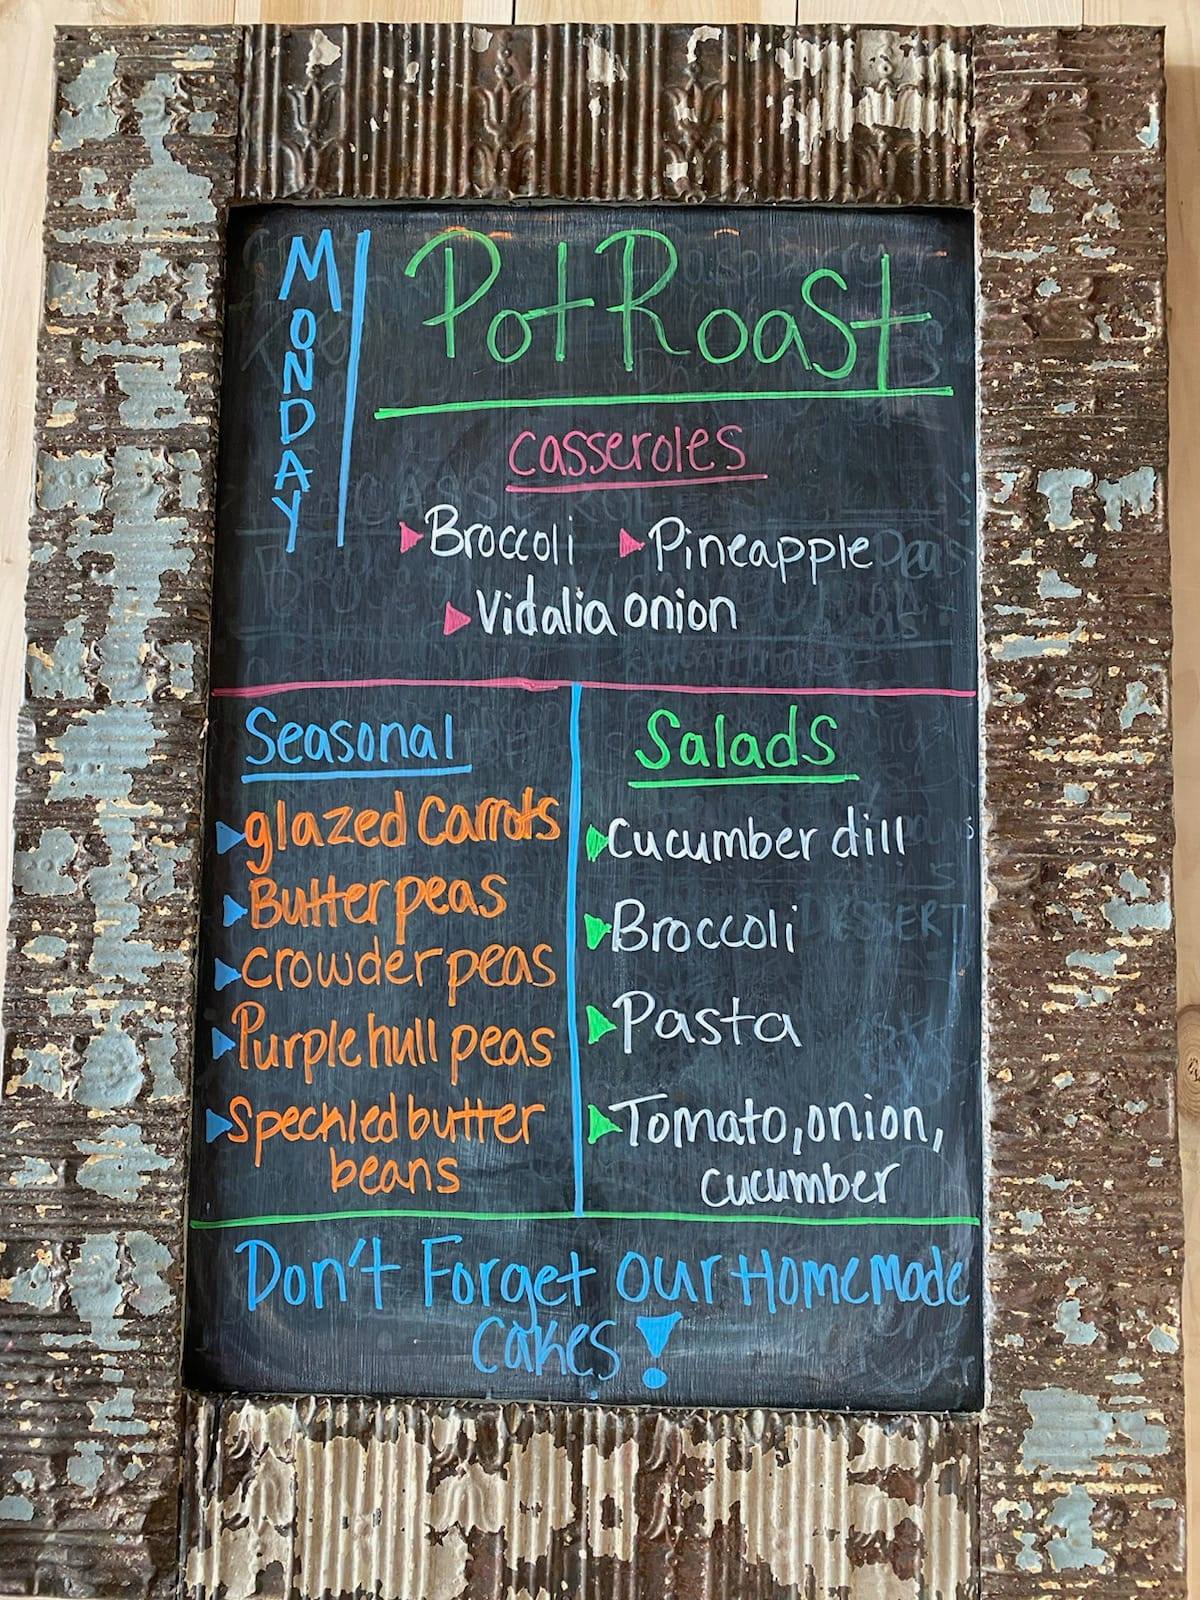 MONDAY
Pot Roast
Casseroles
Broccoli Pineapple
Vidalia onion
Seasonal
glazed Carrots
Butter peas
crowder peas
Purple hull peas
Speckled butter
beans
Salads
Cucumber dill
Broccoli
Pasta
Tomato, onion,
cucumber
Don't Forget our HomeMade
Cakes!